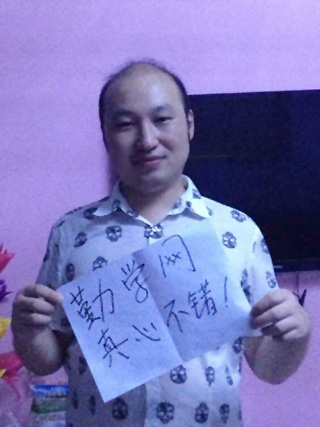 勤学网
真心不错！